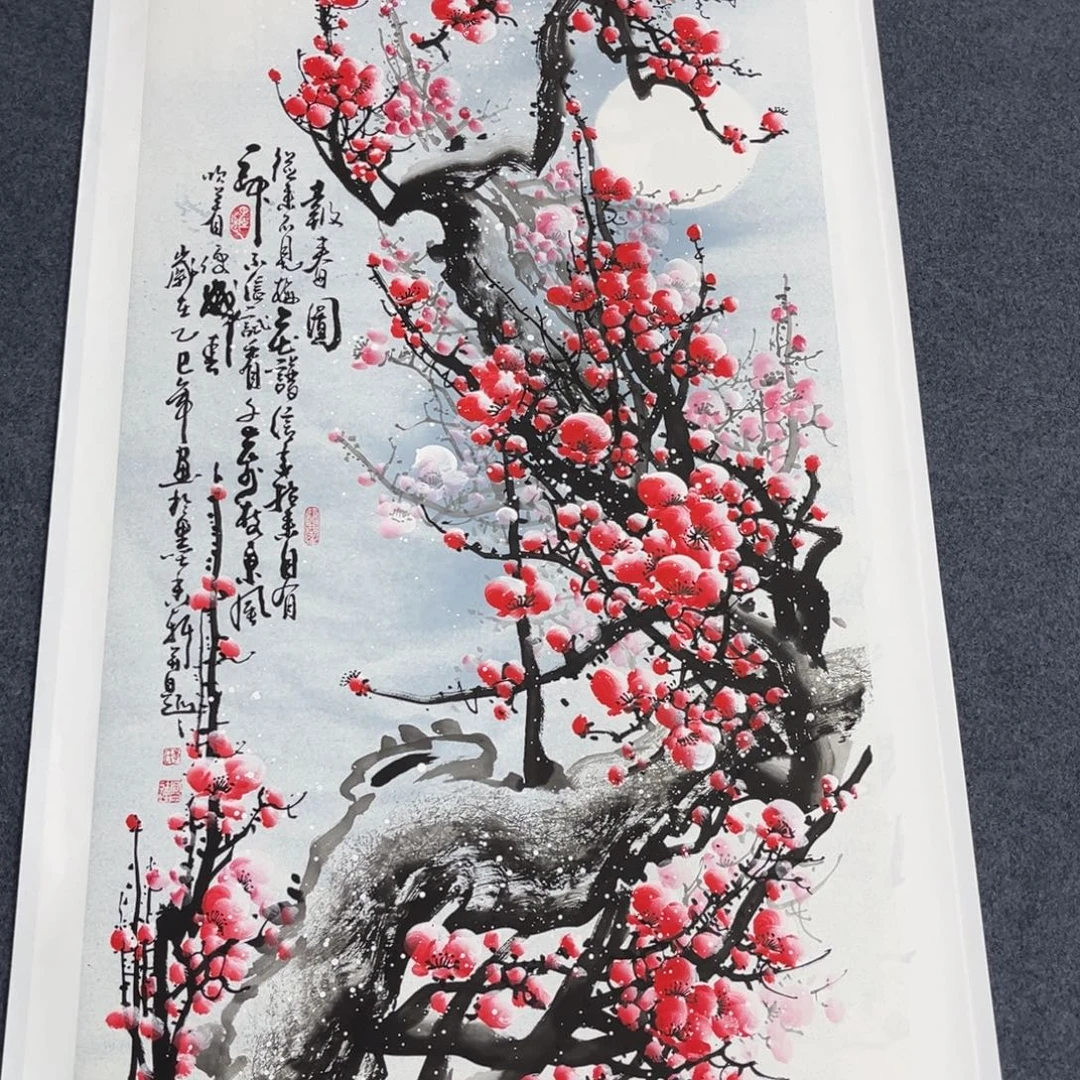 報春圖
從來不見梅花譜信手拈來自有
神不信試看千萬枝東風
吹著便成春
歲在乙巳年畫於墨
題